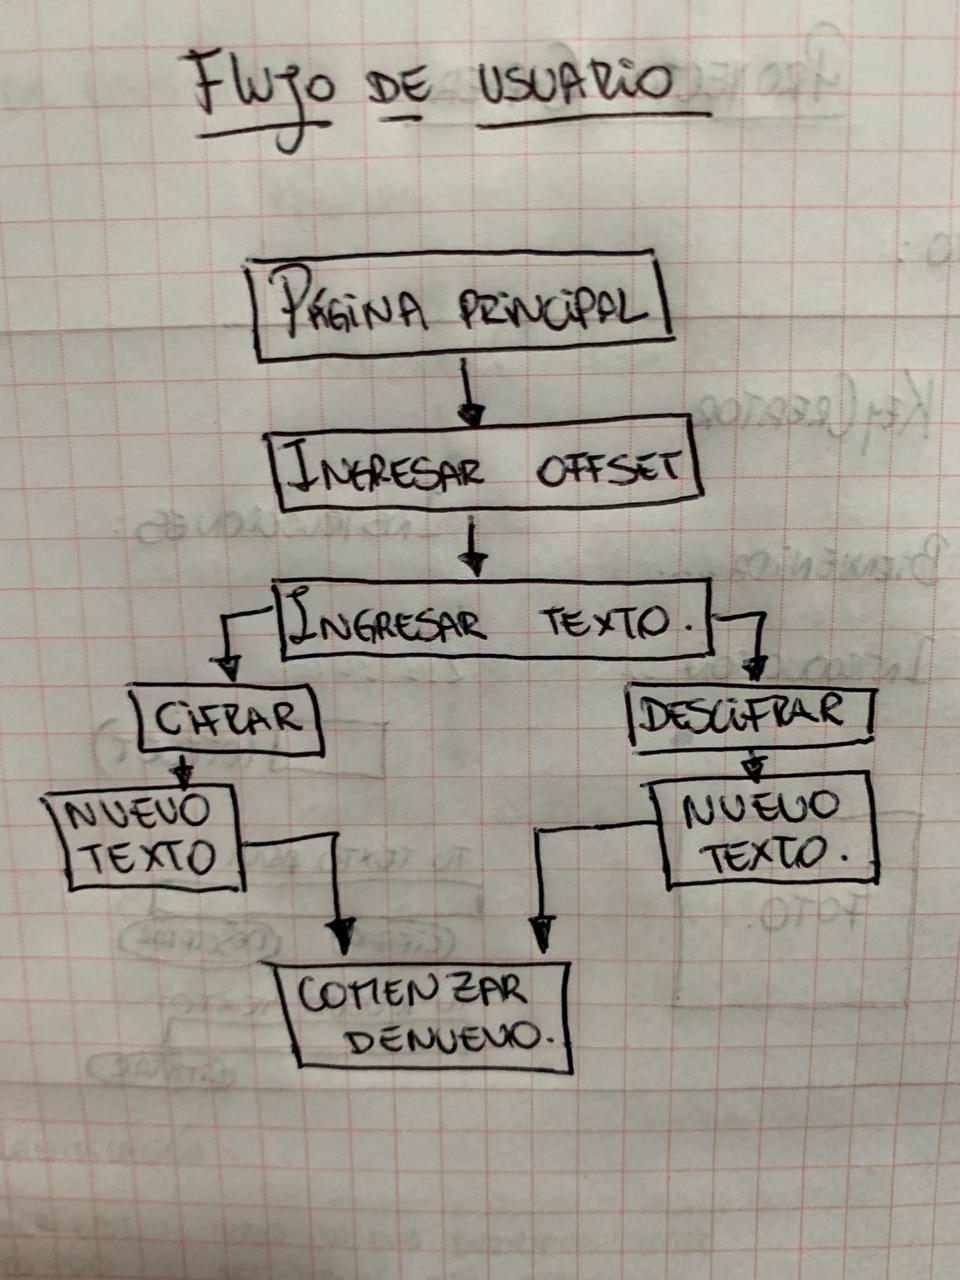 FLUJO DE USUARIO
PÁGINA PRINCIPAL
INGRESAR OFFSET
INGRESAR TEXTO.
CIFRAR
DESCIFRAR
NUEVO
TEXTO
NUEVO
TEXTO.
COMENZAR
DENUEVO.